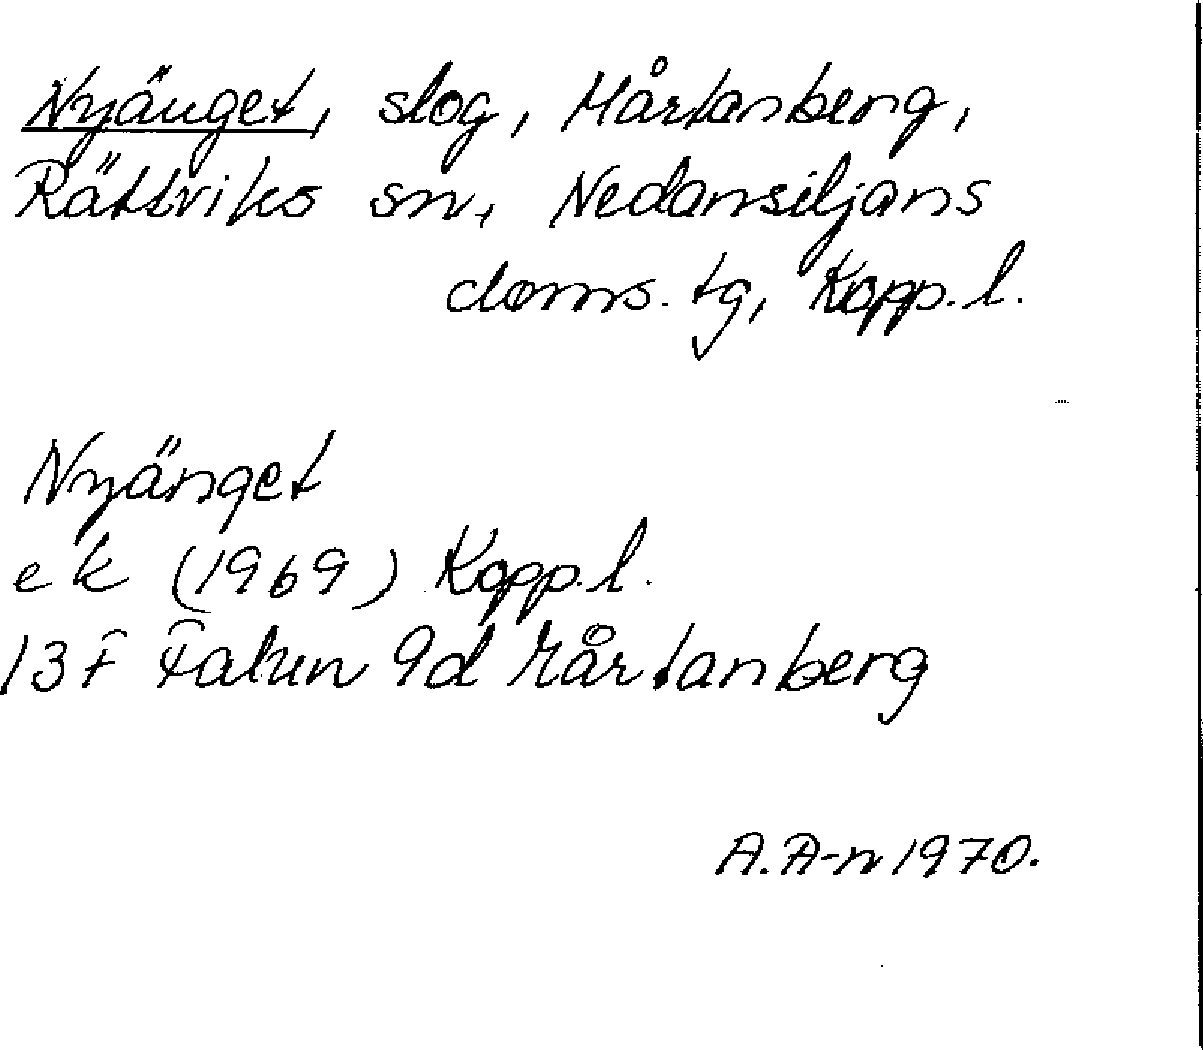 Nyänget, slog, Mårtanberg,
Rättviks sn, Nedansiljans
doms. tg, Kopp. l.
Nyänget
ek (1969) Kopp. l.
13F Falun 9d Mårtanberg
A. A-n 1970.